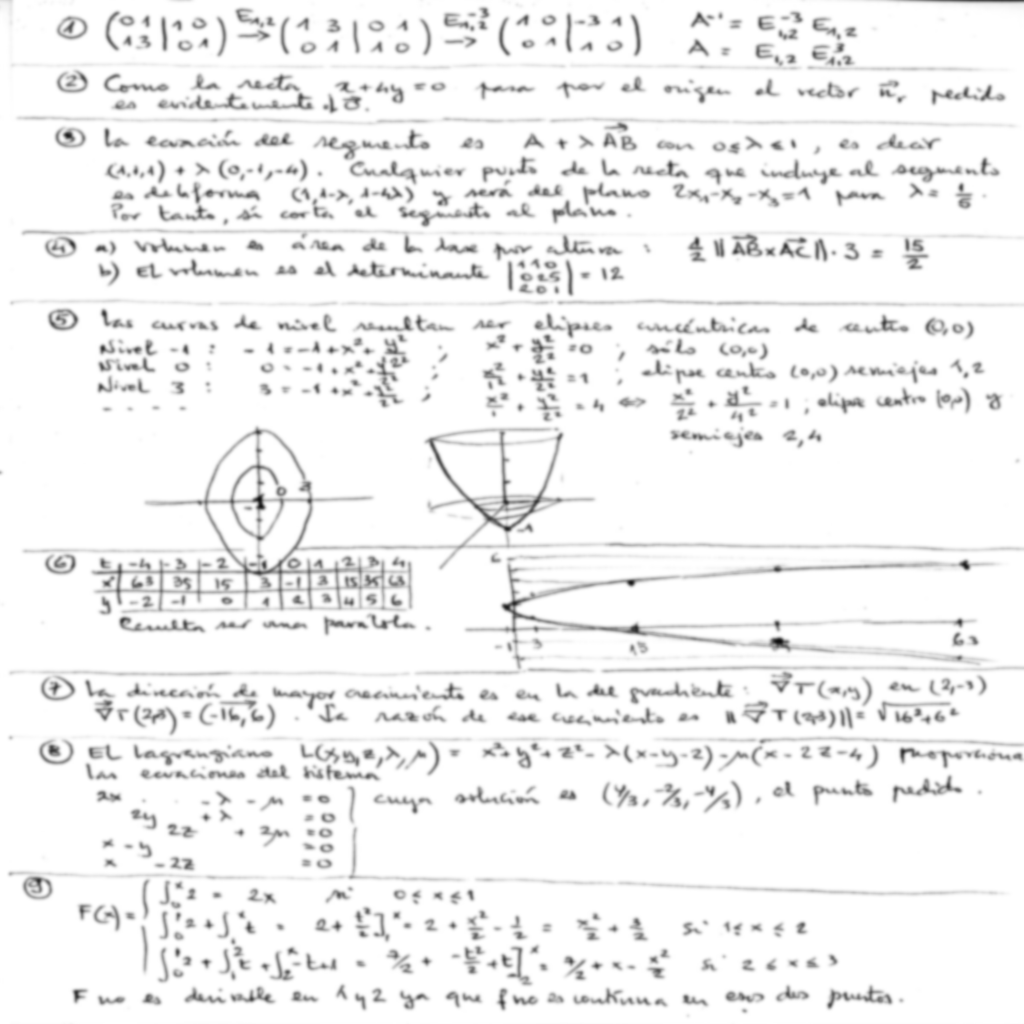 ① (0 1 | 1 0 / 1 3 | 0 1) E₁,₂ → (1 3 | 0 1 / 0 1 | 1 0) E₁,₂⁻³ → (1 0 | -3 1 / 0 1 | 1 0) A⁻¹ = E₁,₂⁻³ E₁,₂
A = E₁,₂ E₁,₂³
② Como la recta x+4y=0 pasa por el origen el vector n⃗ᵣ pedido
es evidentemente el 0⃗.
③ La ecuación del segmento es A + λ AB⃗ con 0≤λ≤1, es decir
(1,1,1) + λ (0,-1,-4). Cualquier punto de la recta que incluye al segmento
es de la forma (1,1-λ,1-4λ) y será del plano 2x₁-x₂-x₃=1 para λ = 1/5.
Por tanto, sí corta el segmento al plano.
④ a) Volumen es área de la base por altura : 1/2 ||AB⃗ x AC⃗||· 3 = 15/2
b) El volumen es el determinante |1 1 0 / 0 2 5 / 2 0 1| = 12
⑤ Las curvas de nivel resultan ser elipses concéntricas de centro (0,0)
Nivel -1 : -1 = -1+x²+y²/2² ; x²+y²/2²=0 ; sólo (0,0)
Nivel 0 : 0 = -1+x²+y²/2² ; x²/1²+y²/2²=1 ; elipse centro (0,0) semiejes 1,2
Nivel 3 : 3 = -1+x²+y²/2² ; x²/1+y²/2²=4 ⇔ x²/2²+y²/4²=1 ; elipse centro (0,0) y
- - - -
semiejes 2,4
-1 0 3
-1
⑥ t -4 -3 -2 -1 0 1 2 3 4
x 63 35 15 3 -1 3 15 35 63
y -2 -1 0 1 2 3 4 5 6
Resulta ser una parábola.
6
-1 3 15 63
⑦ La dirección de mayor crecimiento es en la del gradiente: ∇⃗T(x,y) en (2,-3)
∇⃗T(2,3) = (-16,6). La razón de ese crecimiento es ||∇⃗T(2,3)|| = √16²+6²
⑧ El Lagrangiano L(x,y,z,λ,μ) = x²+y²+z²-λ(x-y-2)-μ(x-2z-4) proporciona
las ecuaciones del sistema
2x -λ-μ =0
2y +λ =0
2z +2μ =0
x -y =0
x -2z =0
cuya solución es (4/3,-2/3,-4/3), el punto pedido.
⑨
F(x) =
∫₀ˣ 2 = 2x si 0≤x≤1
∫₀¹ 2 + ∫₁ˣ t = 2+t²/2]₁ˣ = 2+x²/2-1/2 = x²/2+3/2 si 1≤x≤2
∫₀¹ 2 + ∫₁² t + ∫₂ˣ -t+1 = 7/2 + -t²/2+t]₂ˣ = 7/2+x-x²/2 si 2≤x≤3
F no es derivable en 1 y 2 ya que f no es continua en esos dos puntos.